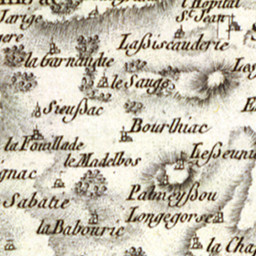 l'Hopital
Jarige
St. Jean
Laßiscauderie
la Garnaudie
le Sauge
Sieußac
Bourlhiac
la Fouillade
le Madelbos
Sabatie
Palmeyßou
Longegorse
la Babourie
la Chap